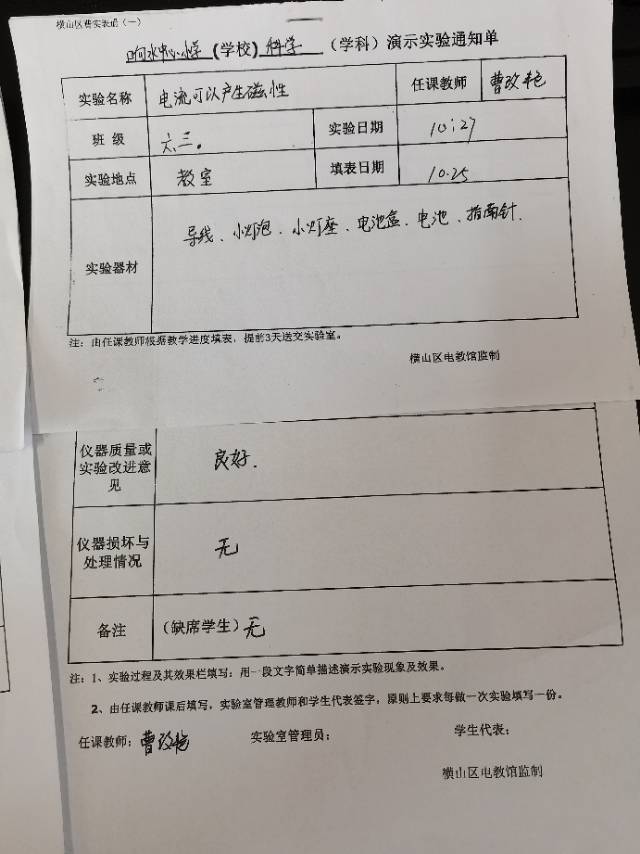 横山区普实表册（一）
响水中心小学（学校）科学（学科）演示实验通知单
实验名称 电流可以产生磁性 任课教师 曹改艳
班 级 六.三。 实验日期 10:27
实验地点 教室 填表日期 10.25
实验器材 导线、小灯泡、小灯座、电池盒、电池、指南针.
注：由任课教师根据教学进度填表，提前3天送交实验室。
横山区电教馆监制
仪器质量或
实验改进意
见 良好.
仪器损坏与
处理情况 无
备注 （缺席学生）无
注：1、实验过程及其效果栏填写：用一段文字简单描述演示实验现象及效果。
2、由任课教师课后填写，实验室管理教师和学生代表签字，原则上要求每做一次实验填写一份。
任课教师：曹改艳 实验室管理员： 学生代表：
横山区电教馆监制